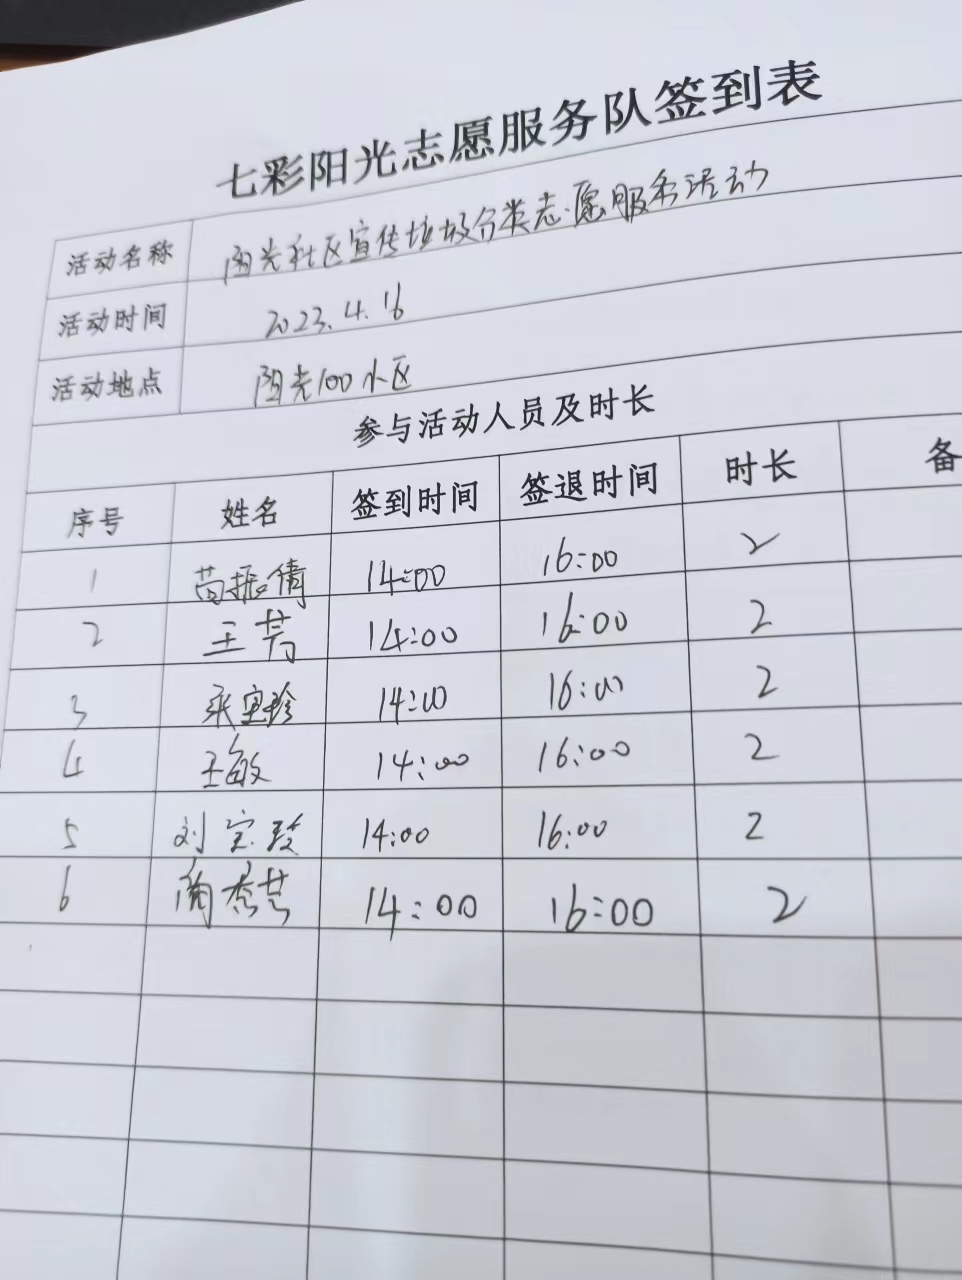 七彩阳光志愿服务队签到表
活动名称 阳光社区宣传垃圾分类志愿服务活动
活动时间 2023.4.16
活动地点 阳光100小区
参与活动人员及时长
序号 姓名 签到时间 签退时间 时长 备
1 苗振倩 14:00 16:00 2
2 王芳 14:00 16:00 2
3 14:00 16:00 2
4 王敏 14:00 16:00 2
5 刘宝玲 14:00 16:00 2
6 14:00 16:00 2